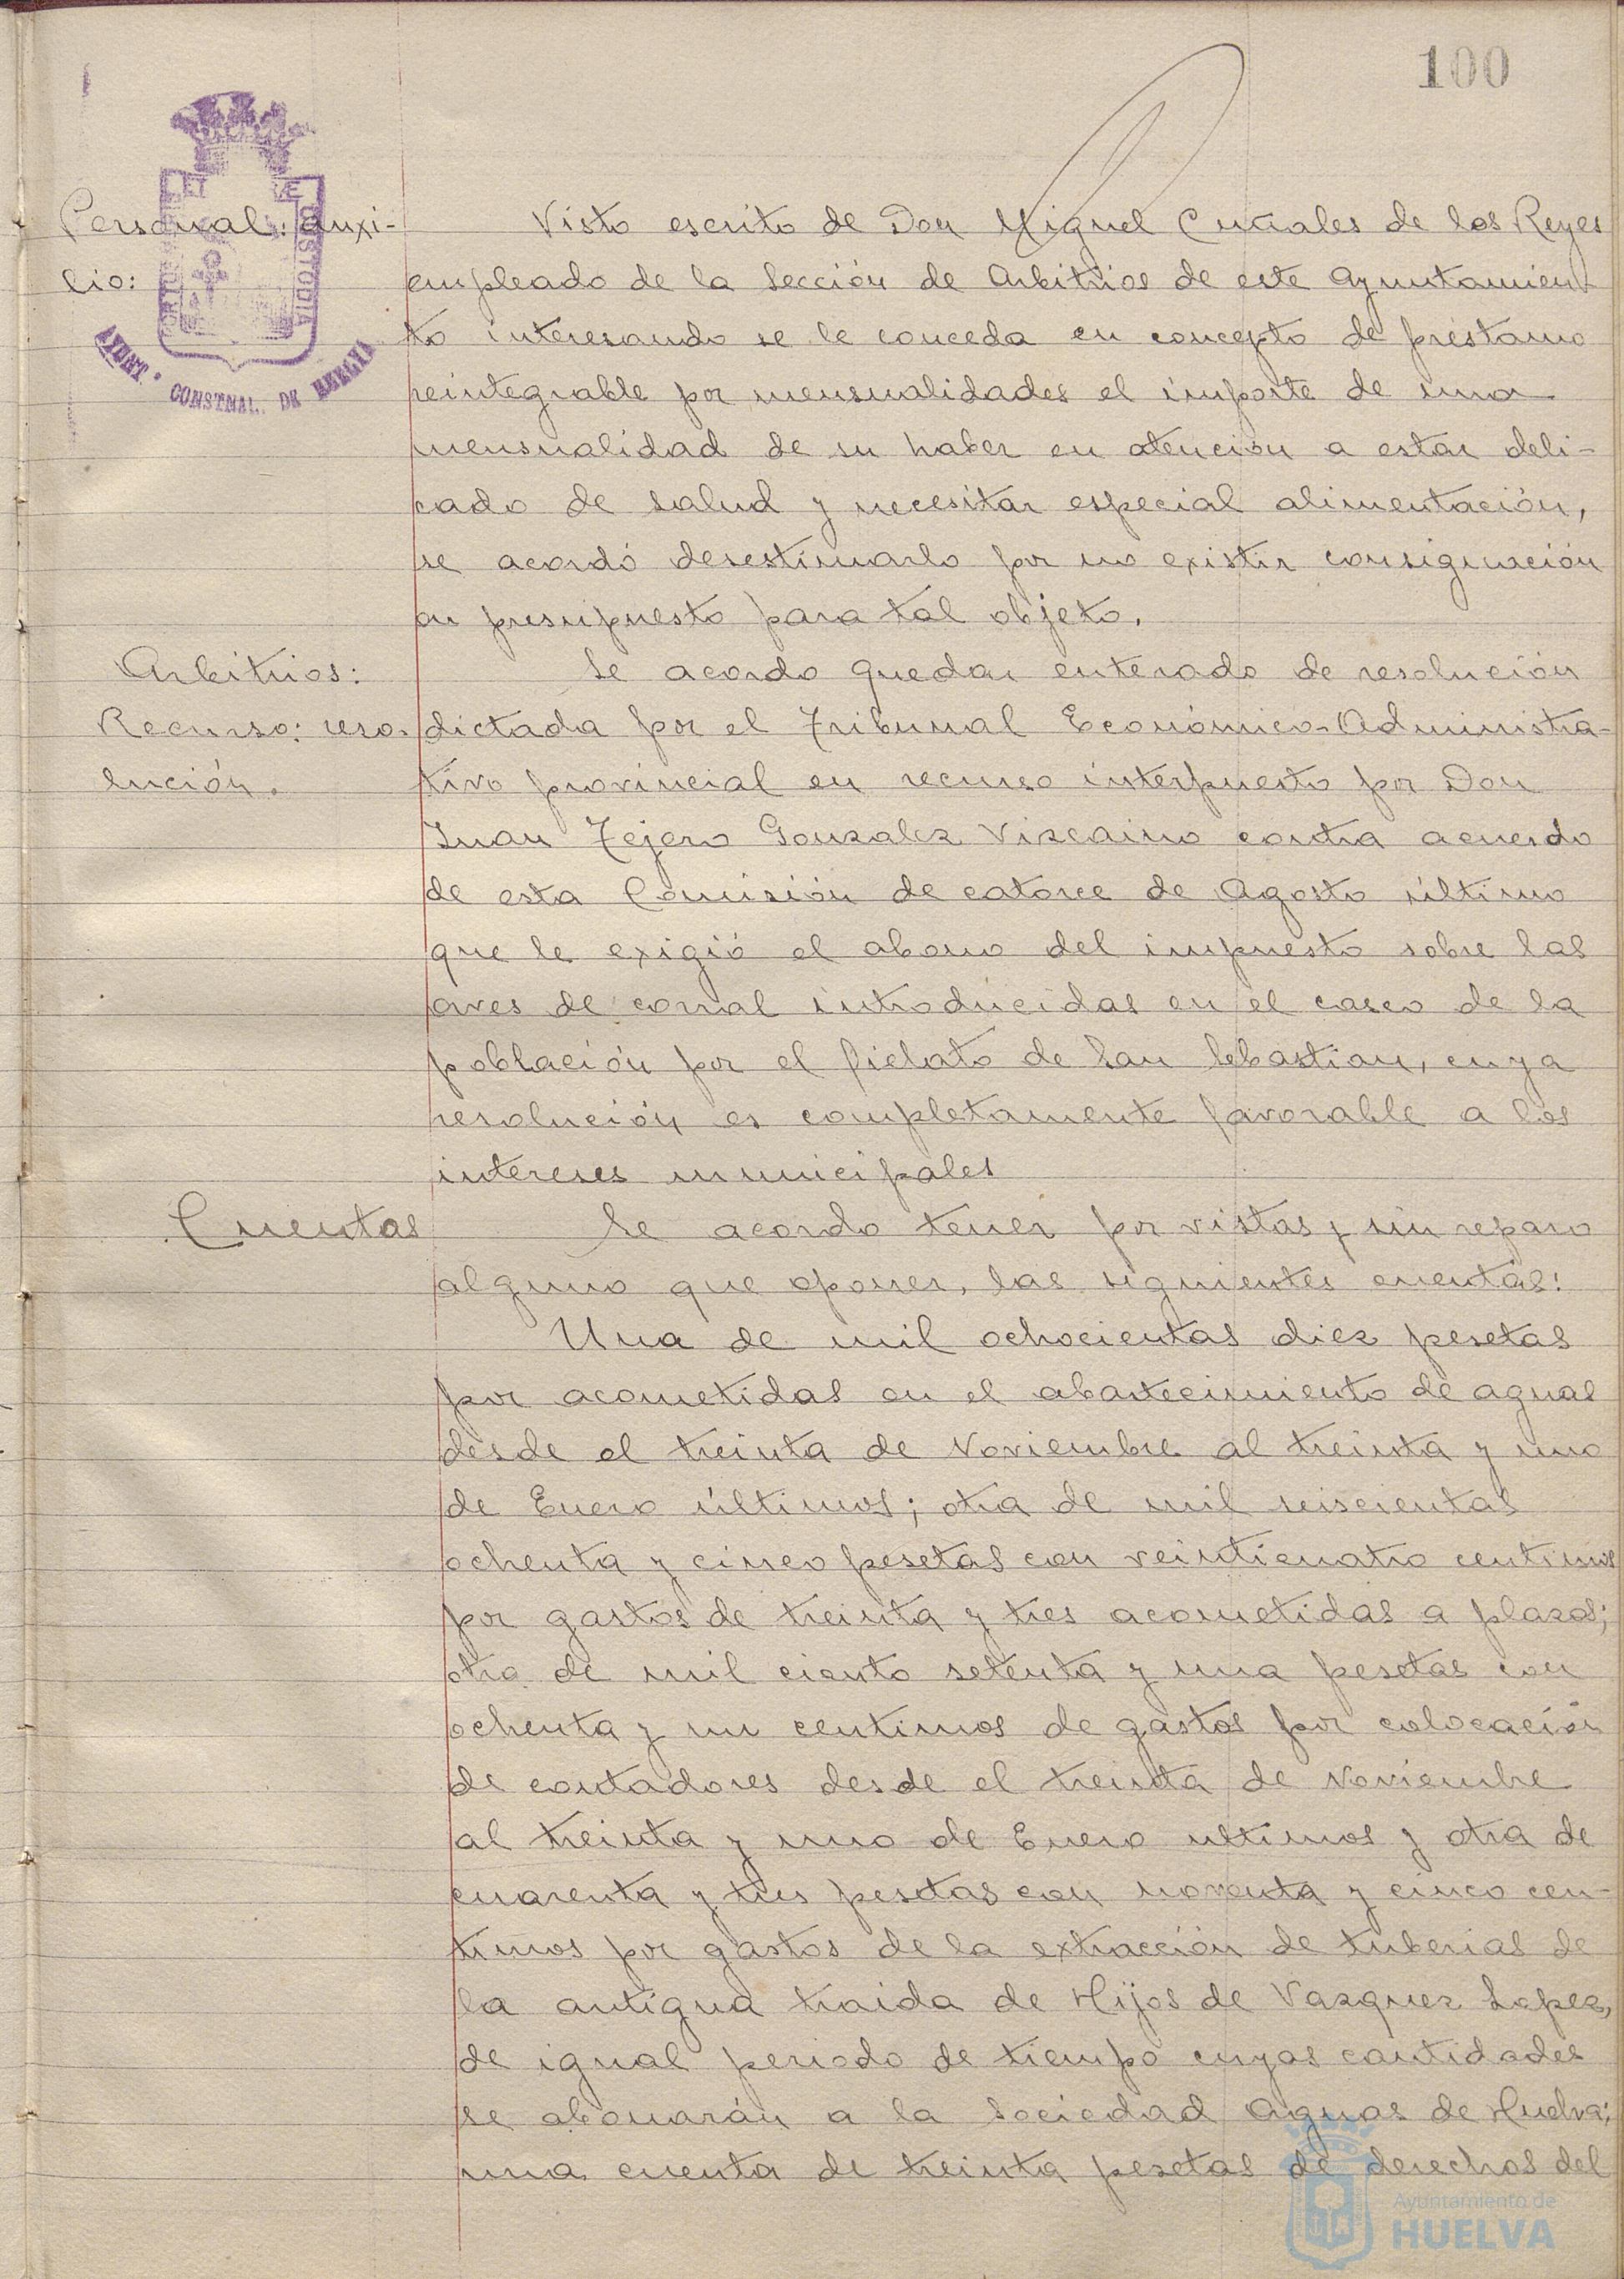 100
PORTUS ET TERRE CUSTODIA
AYUNT. CONSTNAL. DE HUELVA
Personal: auxi-
lio:
Visto escrito de Don Miguel Cuñales de los Reyes
empleado de la Sección de Arbitrios de este Ayuntamien-
to interesando se le conceda en concepto de préstamo
reintegrable por mensualidades el importe de una
mensualidad de su haber en atención a estar deli-
cado de salud y necesitar especial alimentación,
se acordó desestimarlo por no existir consignación
en presupuesto para tal objeto.
Arbitrios:
Recurso: reso-
lución.
Se acordo quedar enterado de resolución
dictada por el Tribunal Económico-Administra-
tivo provincial en recurso interpuesto por Don
Juan Tejero Gonzalez Vizcaino contra acuerdo
de esta Comisión de catorce de Agosto último
que le exigió el abono del impuesto sobre las
aves de corral introducidas en el casco de la
población por el fielato de San Sebastian, cuya
resolución es completamente favorable a los
intereses municipales
Cuentas
Se acordo tener por vistas y sin reparo
alguno que oponer, las siguientes cuentas:
Una de mil ochocientas diez pesetas
por acometidas en el abastecimiento de aguas
desde el treinta de Noviembre al treinta y uno
de Enero últimos; otra de mil seiscientas
ochenta y cinco pesetas con veinticuatro centimos
por gastos de treinta y tres acometidas a plazos;
otra de mil ciento setenta y una pesetas con
ochenta y un centimos de gastos por colocación
de contadores desde el treinta de Noviembre
al treinta y uno de Enero ultimos y otra de
cuarenta y tres pesetas con noventa y cinco cen-
timos por gastos de la extracción de tuberias de
la antigua traida de Hijos de Vazquez Lopez,
de igual periodo de tiempo cuyas cantidades
se abonarán a la Sociedad Aguas de Huelva;
una cuenta de treinta pesetas de derechos del
Ayuntamiento de
HUELVA